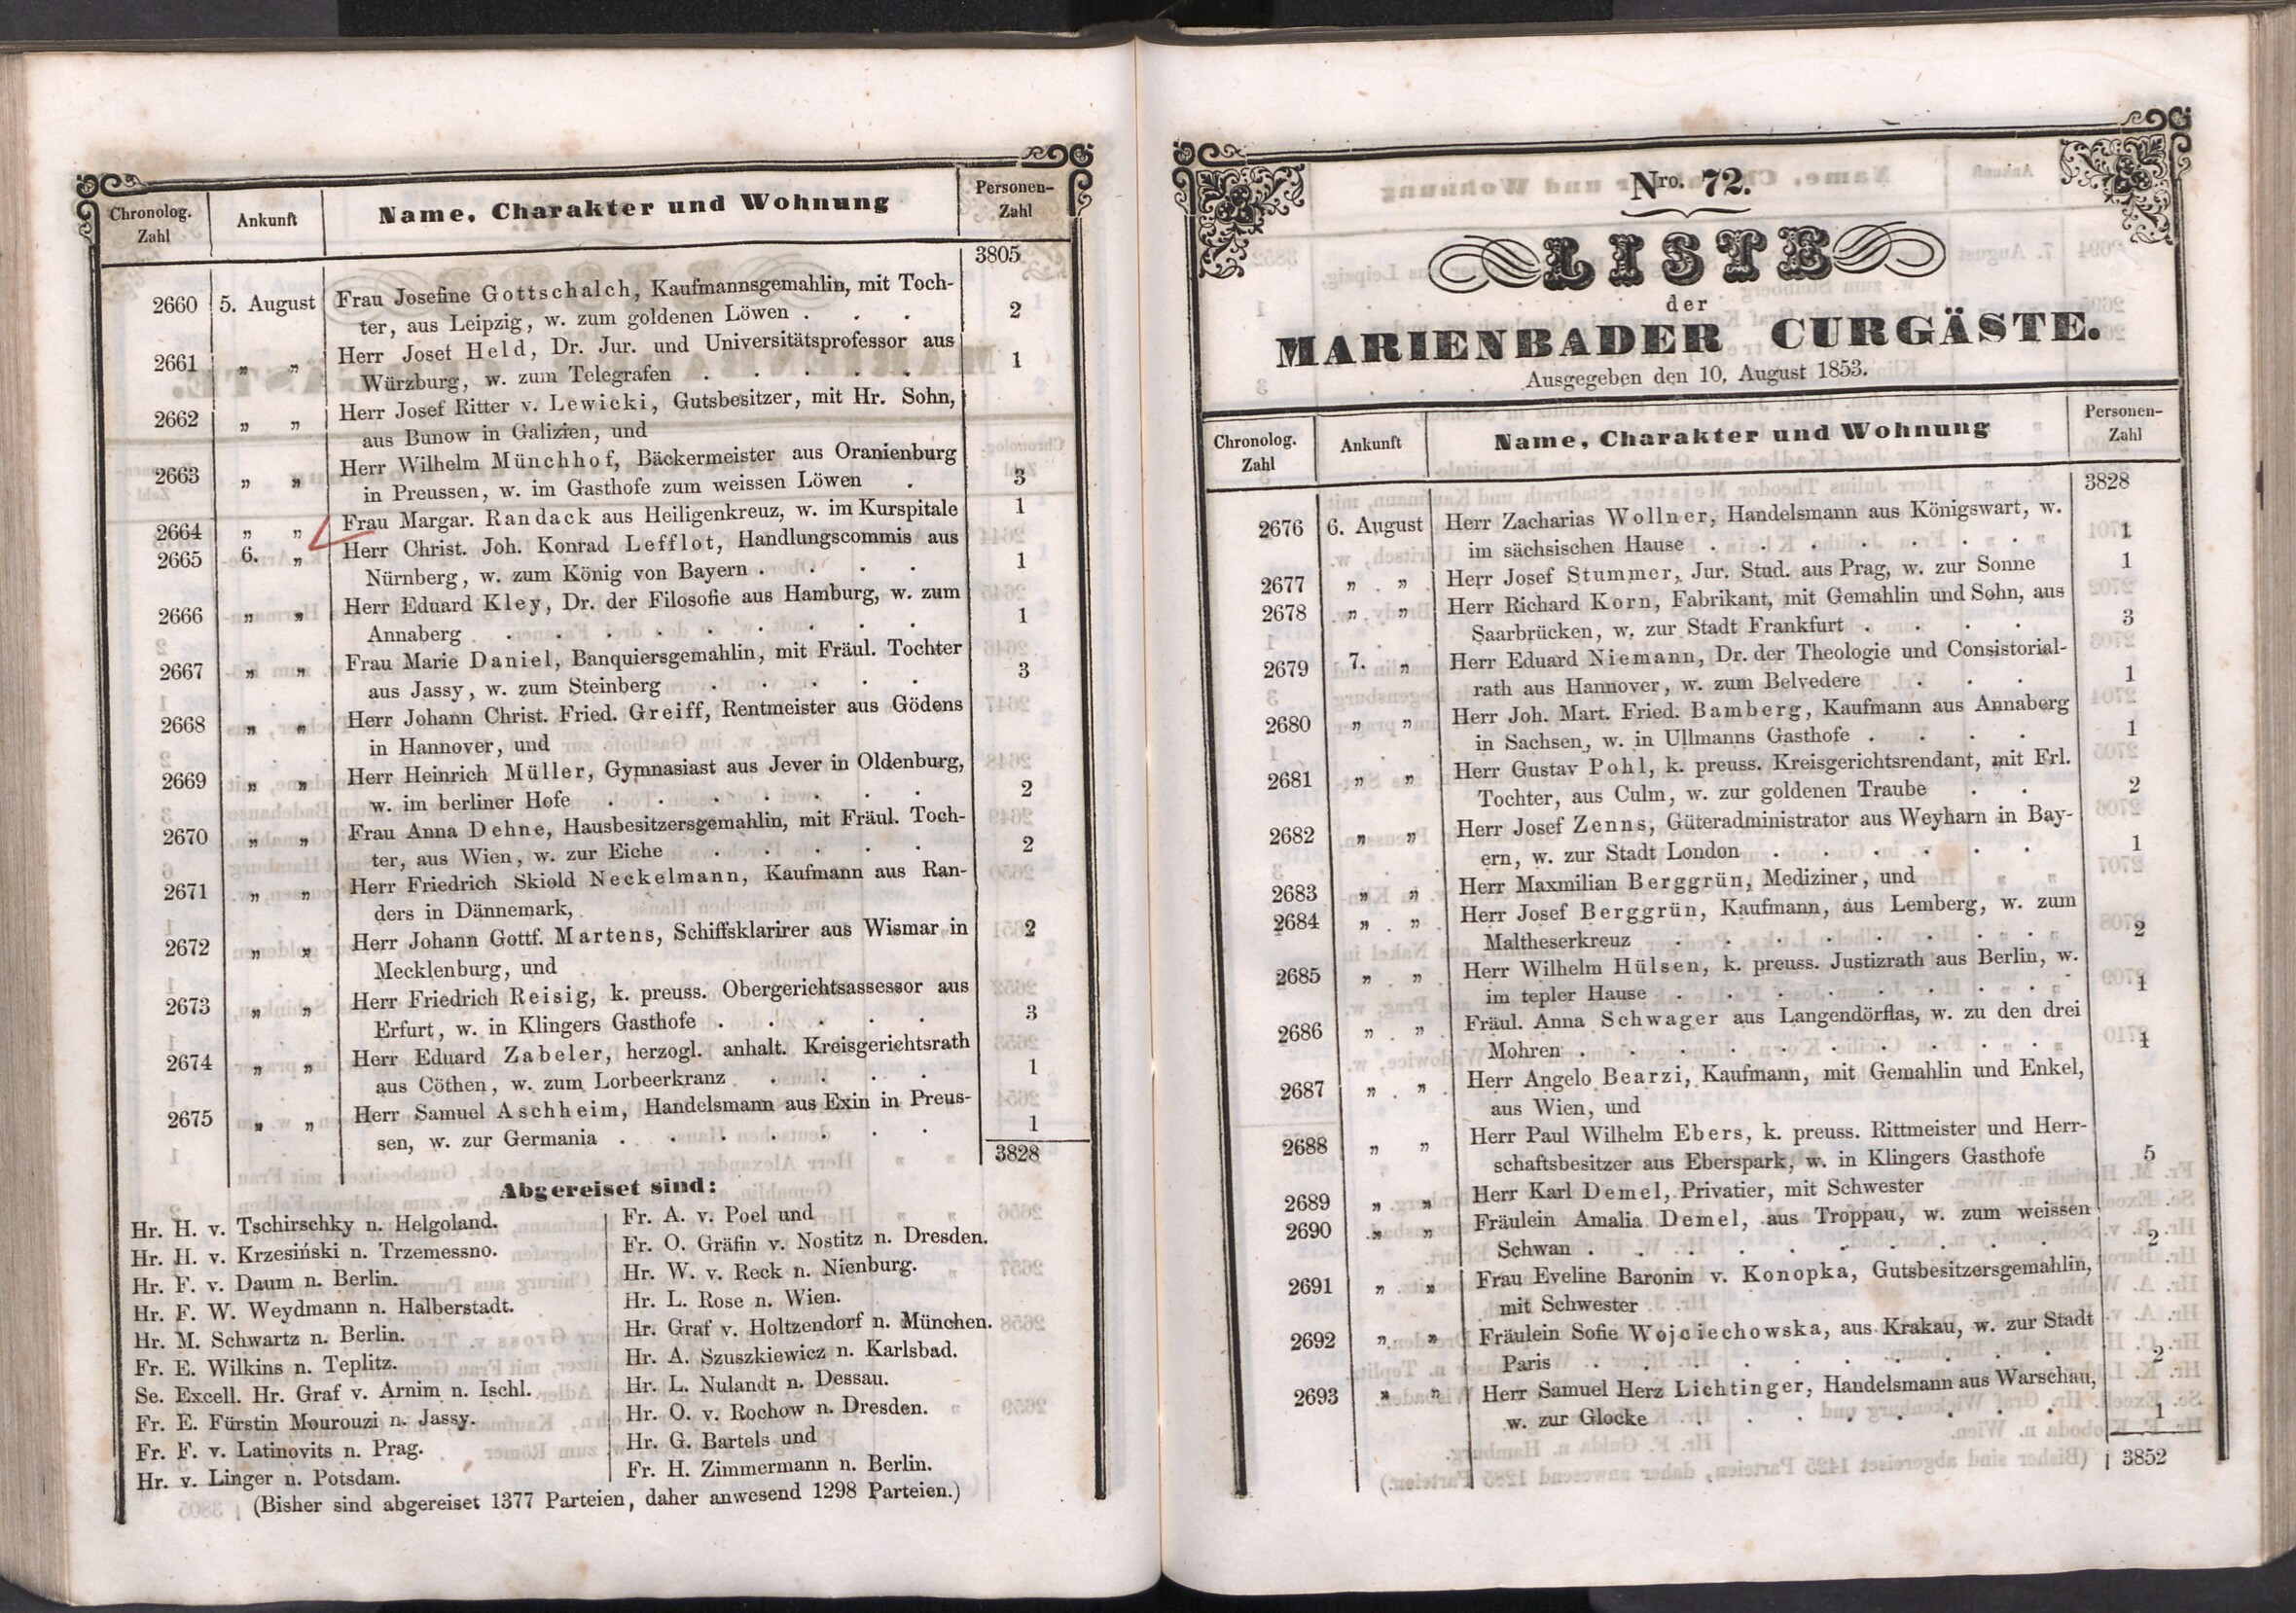 Chronolog. Zahl | Ankunft | Name, Charakter und Wohnung | Personen-Zahl
3805
2660 5. August Frau Josefine Gottschalch, Kaufmannsgemahlin, mit Toch-
ter, aus Leipzig, w. zum goldenen Löwen . . . 2
2661 „ „ Herr Josef Held, Dr. Jur. und Universitätsprofessor aus
Würzburg, w. zum Telegrafen . . . . . 1
2662 „ „ Herr Josef Ritter v. Lewicki, Gutsbesitzer, mit Hr. Sohn,
aus Bunow in Galizien, und
2663 „ „ Herr Wilhelm Münchhof, Bäckermeister aus Oranienburg
in Preussen, w. im Gasthofe zum weissen Löwen . 3
2664 „ „ Frau Margar. Randack aus Heiligenkreuz, w. im Kurspitale 1
2665 6. „ Herr Christ. Joh. Konrad Lefflot, Handlungscommis aus
Nürnberg, w. zum König von Bayern . . . . 1
2666 „ „ Herr Eduard Kley, Dr. der Filosofie aus Hamburg, w. zum
Annaberg . . . . . . . . . 1
2667 „ „ Frau Marie Daniel, Banquiersgemahlin, mit Fräul. Tochter
aus Jassy, w. zum Steinberg . . . . . 3
2668 „ „ Herr Johann Christ. Fried. Greiff, Rentmeister aus Gödens
in Hannover, und
2669 „ „ Herr Heinrich Müller, Gymnasiast aus Jever in Oldenburg,
w. im berliner Hofe . . . . . . . 2
2670 „ „ Frau Anna Dehne, Hausbesitzersgemahlin, mit Fräul. Toch-
ter, aus Wien, w. zur Eiche . . . . . 2
2671 „ „ Herr Friedrich Skiold Neckelmann, Kaufmann aus Ran-
ders in Dännemark,
2672 „ „ Herr Johann Gottf. Martens, Schiffsklarirer aus Wismar in 2
Mecklenburg, und
2673 „ „ Herr Friedrich Reisig, k. preuss. Obergerichtsassessor aus
Erfurt, w. in Klingers Gasthofe . . . . . 3
2674 „ „ Herr Eduard Zabeler, herzogl. anhalt. Kreisgerichtsrath
aus Cöthen, w. zum Lorbeerkranz . . . . 1
2675 „ „ Herr Samuel Aschheim, Handelsmann aus Exin in Preus-
sen, w. zur Germania . . . . . . . 1
3828
Abgereiset sind:
Hr. H. v. Tschirschky n. Helgoland.
Hr. H. v. Krzesiński n. Trzemessno.
Hr. F. v. Daum n. Berlin.
Hr. F. W. Weydmann n. Halberstadt.
Hr. M. Schwartz n. Berlin.
Fr. E. Wilkins n. Teplitz.
Se. Excell. Hr. Graf v. Arnim n. Ischl.
Fr. E. Fürstin Mourouzi n. Jassy.
Fr. F. v. Latinovits n. Prag.
Hr. v. Linger n. Potsdam.
Fr. A. v. Poel und
Fr. O. Gräfin v. Nostitz n. Dresden.
Hr. W. v. Reck n. Nienburg.
Hr. L. Rose n. Wien.
Hr. Graf v. Holtzendorf n. München.
Hr. A. Szuszkiewicz n. Karlsbad.
Hr. L. Nulandt n. Dessau.
Hr. O. v. Rochow n. Dresden.
Hr. G. Bartels und
Fr. H. Zimmermann n. Berlin.
(Bisher sind abgereiset 1377 Parteien, daher anwesend 1298 Parteien.)
Nro. 72.
LISTE
der
MARIENBADER CURGÄSTE.
Ausgegeben den 10. August 1853.
Chronolog. Zahl | Ankunft | Name, Charakter und Wohnung | Personen-Zahl
3828
2676 6. August Herr Zacharias Wollner, Handelsmann aus Königswart, w.
im sächsischen Hause . . . . . . . 1
2677 „ „ Herr Josef Stummer, Jur. Stud. aus Prag, w. zur Sonne 1
2678 „ „ Herr Richard Korn, Fabrikant, mit Gemahlin und Sohn, aus
Saarbrücken, w. zur Stadt Frankfurt . . . . 3
2679 7. „ Herr Eduard Niemann, Dr. der Theologie und Consistorial-
rath aus Hannover, w. zum Belvedere . . . 1
2680 „ „ Herr Joh. Mart. Fried. Bamberg, Kaufmann aus Annaberg
in Sachsen, w. in Ullmanns Gasthofe . . . . 1
2681 „ „ Herr Gustav Pohl, k. preuss. Kreisgerichtsrendant, mit Frl.
Tochter, aus Culm, w. zur goldenen Traube . . 2
2682 „ „ Herr Josef Zenns, Güteradministrator aus Weyharn in Bay-
ern, w. zur Stadt London . . . . . . 1
2683 „ „ Herr Maxmilian Berggrün, Mediziner, und
2684 „ „ Herr Josef Berggrün, Kaufmann, aus Lemberg, w. zum
Maltheserkreuz . . . . . . . . 2
2685 „ „ Herr Wilhelm Hülsen, k. preuss. Justizrath aus Berlin, w.
im tepler Hause . . . . . . . . 1
2686 „ „ Fräul. Anna Schwager aus Langendörflas, w. zu den drei
Mohren . . . . . . . . . . 1
2687 „ „ Herr Angelo Bearzi, Kaufmann, mit Gemahlin und Enkel,
aus Wien, und
2688 „ „ Herr Paul Wilhelm Ebers, k. preuss. Rittmeister und Herr-
schaftsbesitzer aus Eberspark, w. in Klingers Gasthofe 5
2689 „ „ Herr Karl Demel, Privatier, mit Schwester
2690 „ „ Fräulein Amalia Demel, aus Troppau, w. zum weissen
Schwan . . . . . . . . . . 2
2691 „ „ Frau Eveline Baronin v. Konopka, Gutsbesitzersgemahlin,
mit Schwester
2692 „ „ Fräulein Sofie Wojciechowska, aus Krakau, w. zur Stadt
Paris . . . . . . . . . . 2
2693 „ „ Herr Samuel Herz Lichtinger, Handelsmann aus Warschau,
w. zur Glocke . . . . . . . . 1
3852